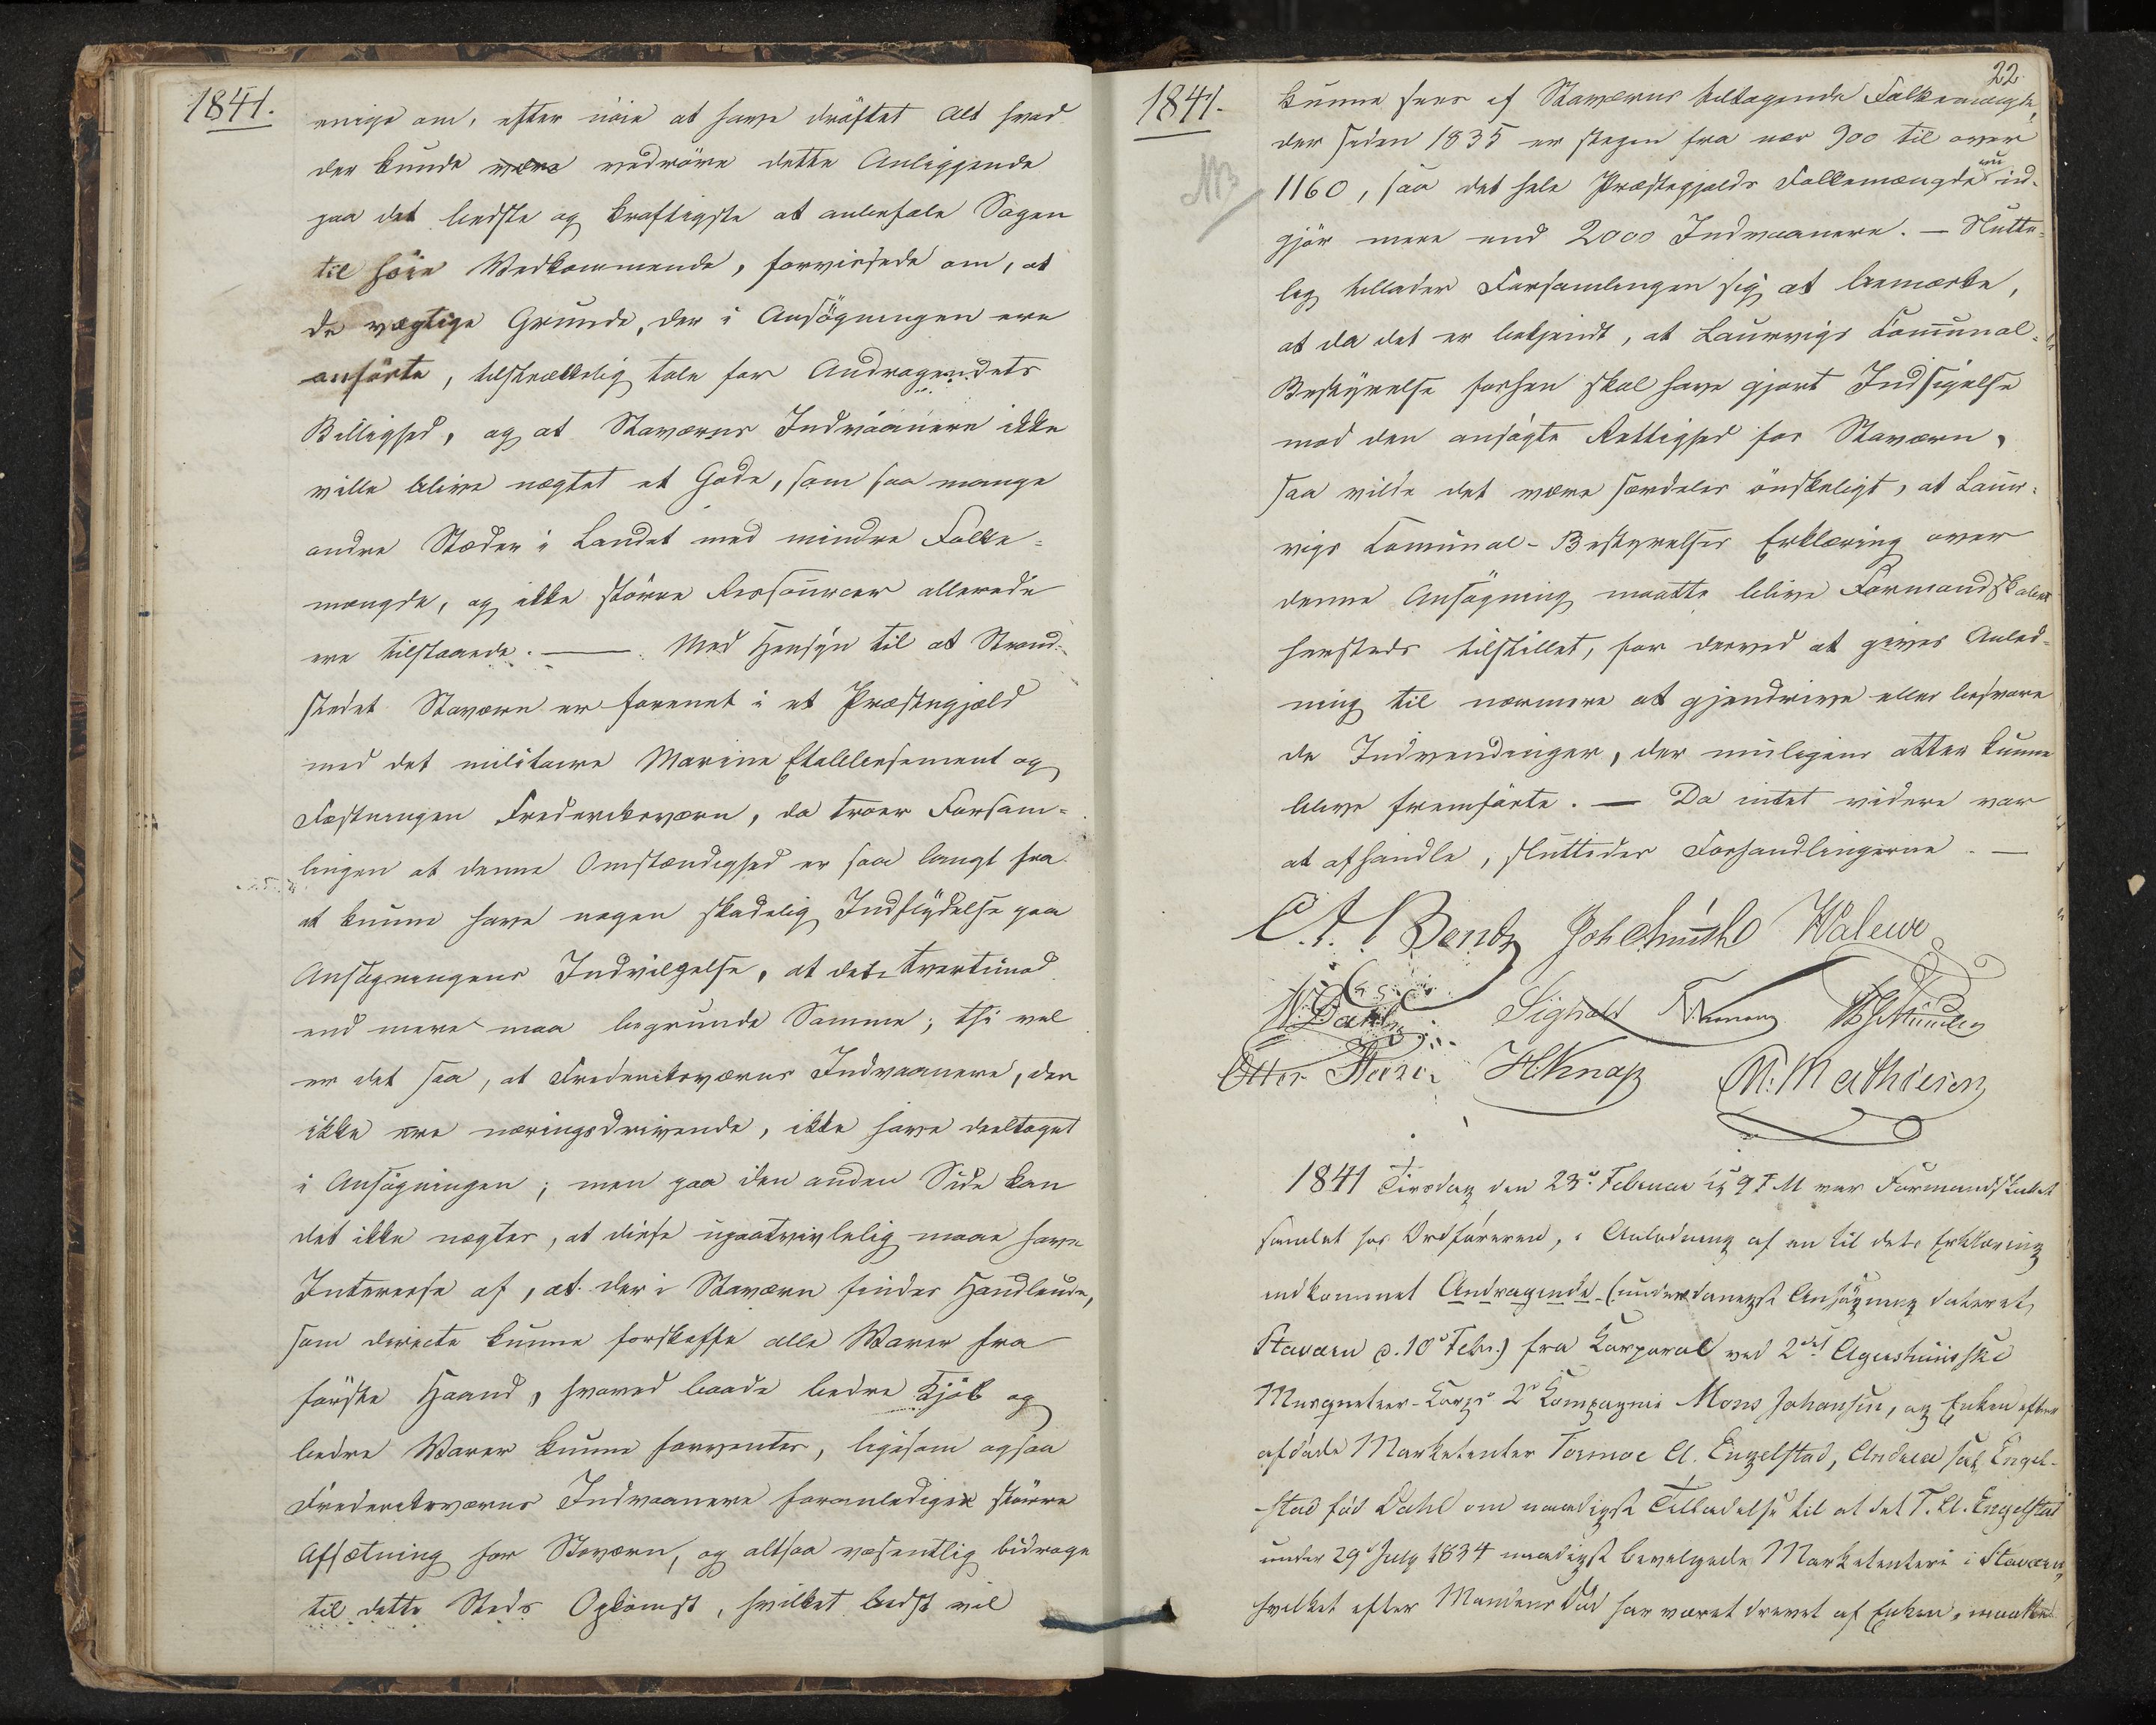 1841.
enige om, efter nöie at have dröftet Alt hvad
der kunde være vedröre dette Anliggende
paa det bedste og kraftigste at anbefale Sagen
til höie Vedkommende, forvissede om, at
de vægtige Grunde, der i Ansögningen ere
anförte, tilstrækkelig tale for Andragendets
Billighed, og at Staværns Indvaanere ikke
ville blive nægtet et Gode, som saa mange
andre Stæder i Landet med mindre Folke-
mængde, og ikke större Ressourcer allerede
ere tilstaaede. — Med Hensyn til at Strand-
stedet Staværn er forenet i et Præstegjæld
med det militaire Marine Etablissement og
Fæstningen Frederiksværn, da troer Forsam-
lingen at denne Omstændighed er saa langt fra
at kunne have nogen skadelig Indflydelse paa
Ansögningens Indvilgelse, at det tvertimod
end mere maa begrunde Samme; thi vel
er det saa, at Frederiksværns Indvaanere, der
ikke ere næringsdrivende, ikke have deeltaget
i Ansögningen; men paa den anden Side kan
det ikke nægtes, at disse upaatvivlelig maae have
Interesse af, at der i Staværn findes Handlende,
som directe kunne forskaffe alle Varer fra
förste Haand, hvorved baade bedre Kjöb og
bedre Varer kunne forventes, ligesom ogsaa
Frederiksværns Indvaanere foranlediger större
Afsætning for Staværn, og altsaa væsentlig bidrage
til dette Steds Opkomst, hvilket bedst vil
22
1841.
kunne sees af Staværns tiltagende Folkemængde,
der siden 1835 er stegen fra nær 900 til over
NB
1160, saa det hele Præstegjelds Folkemængde nu ud-
gjör mere end 2000 Indvaanere. — Slutte-
lig tillader Forsamlingen sig at bemærke,
at da det er bekjendt, at Laurvigs Communal-
Bestyrelse forhen skal have gjort Indsigelse
mod den ansögte Rettighed for Staværn,
saa vilde det være særdeles önskeligt, at Laur-
vigs Communal-Bestyrelses Erklæring over
denne Ansögning maatte blive Formandskabet
hersteds tilstillet, for derved at gives Anled-
ning til nærmere at gjendrive eller besvare
de Indvendinger, der muligens atter kunne
blive fremförte. — Da intet videre var
at afhandle, sluttedes Forhandlingerne. —
C. A. Bentz Joh Walewe
N. Dahl Sighold
Otter H Knap M. Mathiesen
1841 Tirsdag den 23de Februar Kl 9 F M var Formandskabet
samlet hos Ordföreren, i Anledning af en til dets Erklæring
indkommet Andragende (underdanigst Ansögning dateret
Staværn d. 10de Febr.) fra Korporal ved 2det Agershuusiske
Musqueteer-Korps 2det Kompagnie Mons Johansen, og Enken efter
afdöde Marketenter Tormoe A. Engelstad, Andrea sal. Engel-
stad föd Dahl om naadigst Tilladelse til at det T. A. Engelstad
under 29de July 1834 naadigst bevilgede Marketenteri i Staværn,
hvilket efter Mandens Död har været drevet af Enken, maatte